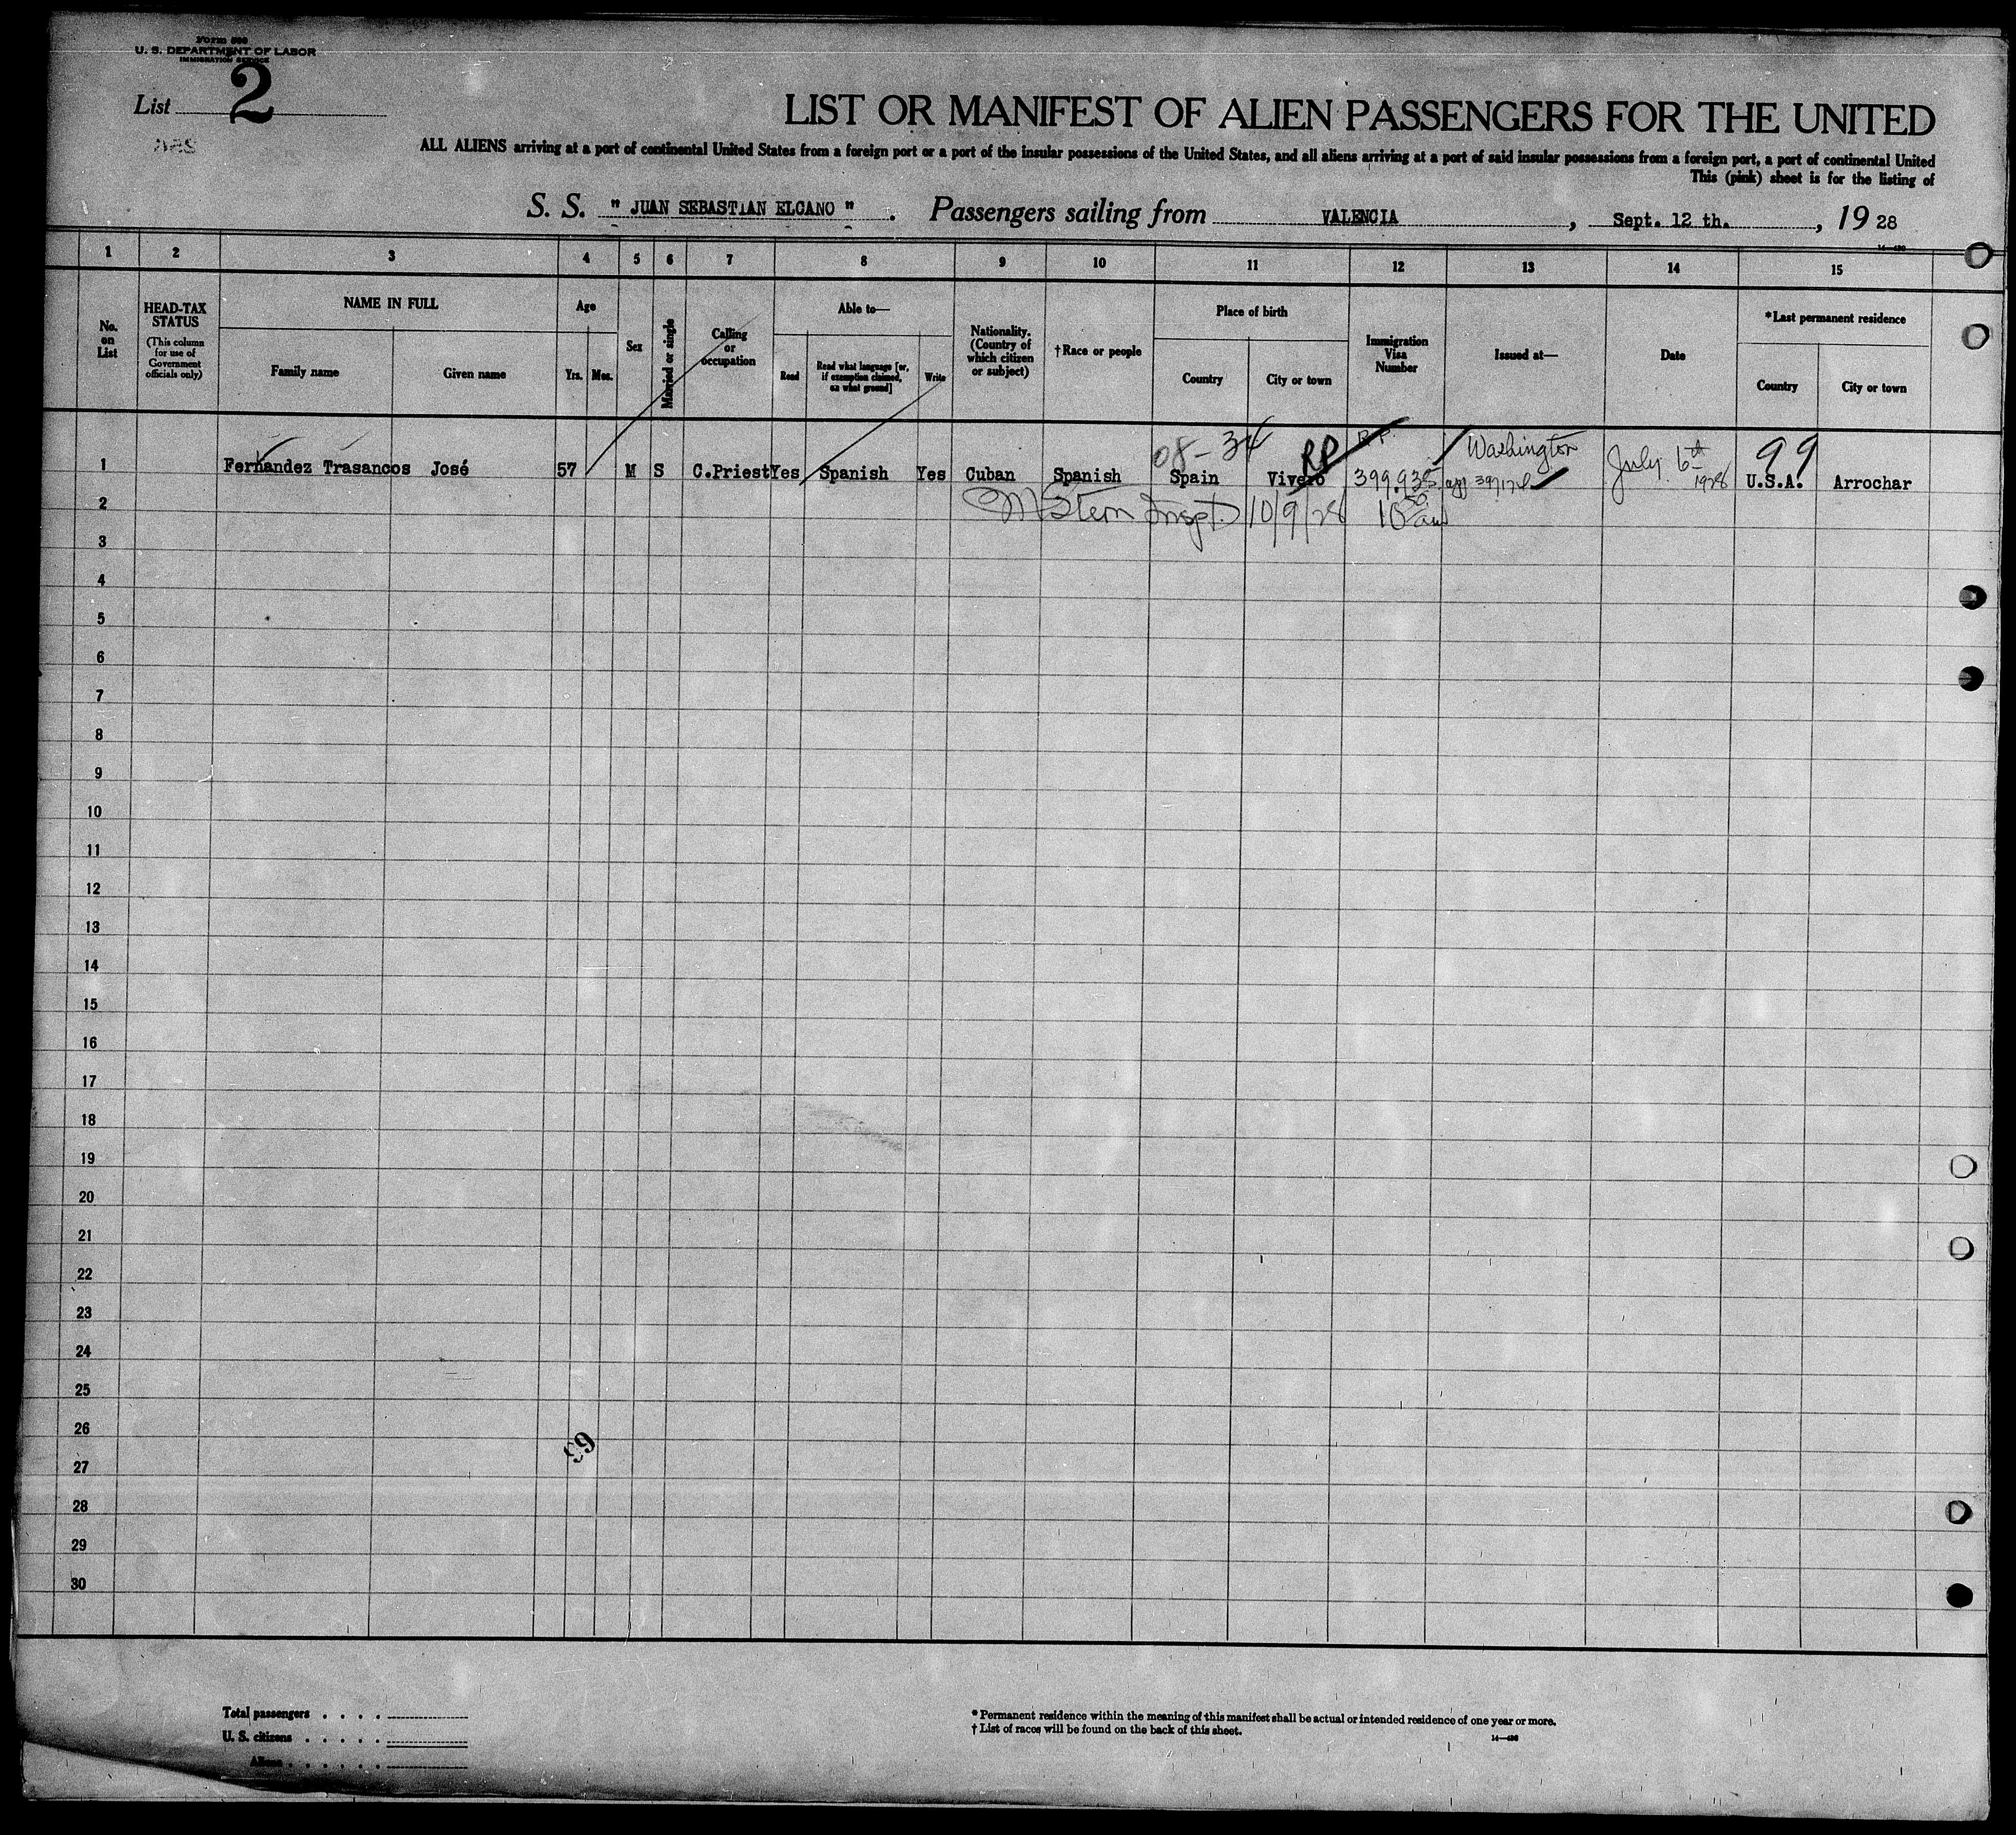 Form 500
U. S. DEPARTMENT OF LABOR
IMMIGRATION SERVICE
List 2
LIST OR MANIFEST OF ALIEN PASSENGERS FOR THE UNITED
ALL ALIENS arriving at a port of continental United States from a foreign port or a port of the insular possessions of the United States, and all aliens arriving at a port of said insular possessions from a foreign port, a port of continental United
This (pink) sheet is for the listing of
S. S. " JUAN SEBASTIAN ELCANO " . Passengers sailing from VALENCIA , Sept. 12 th. , 19 28
1 2 3 4 5 6 7 8 9 10 11 12 13 14 15
No. on List
HEAD-TAX STATUS
(This column for use of Government officials only)
NAME IN FULL
Family name Given name
Age
Yrs. Mos.
Sex
Married or single
Calling or occupation
Able to—
Read Read what language [or, if exemption claimed, on what ground] Write
Nationality. (Country of which citizen or subject)
†Race or people
Place of birth
Country City or town
Immigration Visa Number
Issued at—
Date
*Last permanent residence
Country City or town
08-34 RP R.P. Washington July 6th 1928 99
1 Fernandez Trasancos José 57 M S C.Priest Yes Spanish Yes Cuban Spanish Spain Vivero 399.935 U.S.A. Arrochar
2 M Stern Inspt. 10/9/28 10 50 am
3
4
5
6
7
8
9
10
11
12
13
14
15
16
17
18
19
20
21
22
23
24
25
26
63
27
28
29
30
Total passengers . . . .
U. S. citizens . . . . .
Aliens . . . . . .
* Permanent residence within the meaning of this manifest shall be actual or intended residence of one year or more.
† List of races will be found on the back of this sheet.